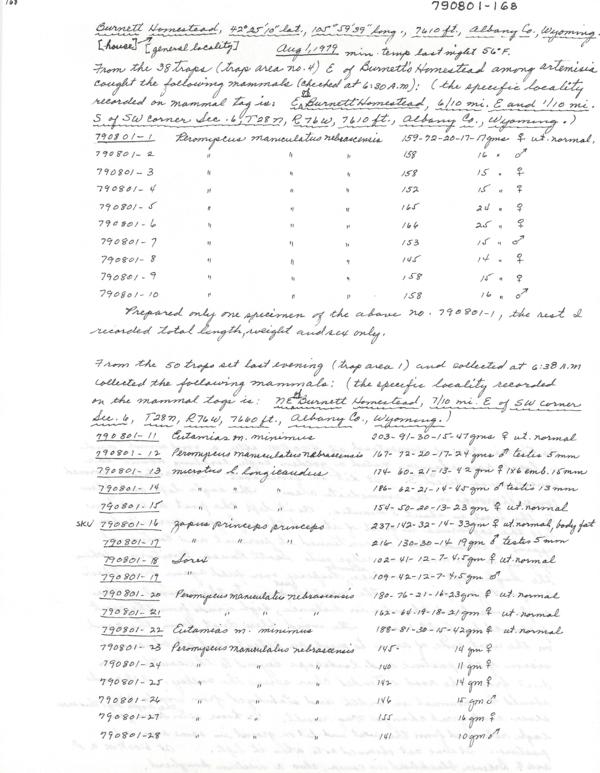 168
790801-168
Burnett Homestead, 42°25'10" lat., 105°59'39" long., 7610 ft., Albany Co., Wyoming.
[house] [general locality] Aug 1, 1979 min. temp last night 56°F.
From the 38 traps (trap area no. 4) E of Burnett's Homestead among artemisia
caught the following mammals (checked at 6:30 A.M): (the specific locality
recorded on mammal tag is: E of Burnett Homestead, 6/10 mi. E and 1/10 mi.
S of SW corner Sec. 6, T28N, R76W, 7610 ft., Albany Co., Wyoming.)
790801-1 Peromyscus maniculatus nebrascensis 159-72-20-17-17gms ♀ ut. normal.
790801-2 " " " 158 16 " ♂
790801-3 " " " 158 15 " ♀
790801-4 " " " 152 15 " ♀
790801-5 " " " 165 24 " ♀
790801-6 " " " 166 25 " ♀
790801-7 " " " 153 15 " ♂
790801-8 " " " 145 14 " ♀
790801-9 " " " 158 15 " ♀
790801-10 " " " 158 16 " ♂
Prepared only one specimen of the above no. 790801-1, the rest I
recorded total length, weight and sex only.
From the 50 traps set last evening (trap area 1) and collected at 6:38 A.M
collected the following mammals: (the specific locality recorded
on the mammal tags is: NE of Burnett Homestead, 7/10 mi. E of SW corner
Sec. 6, T28N, R76W, 7660 ft., Albany Co., Wyoming.)
790801-11 Eutamias m. minimus 203-91-30-15-47gms ♀ ut. normal
790801-12 Peromyscus maniculatus nebrascensis 167-72-20-17-24 gms ♂ testes 5mm
790801-13 microtus l. longicaudus 174-60-21-13-42 gm ♀ 1x6 emb. 15mm
790801-14 " " " 186-62-21-14-45 gm ♂ testis 13mm
790801-15 " " " 154-50-20-13-23 gm ♀ ut. normal
SKU 790801-16 Zapus princeps princeps 237-142-32-14-33gm ♀ ut. normal, body fat
790801-17 " " " 216-130-30-14 19gm ♂ testes 5mm
790801-18 Sorex 102-41-12-7-4.5gm ♀ ut. normal
790801-19 " 109-42-12-7-4.5gm ♂
790801-20 Peromyscus maniculatus nebrascensis 180-76-21-16-23gm ♀ ut. normal
790801-21 " " " 162-64-19-18-21gm ♀ ut. normal
790801-22 Eutamias m. minimus 188-81-30-15-42gm ♀ ut. normal
790801-23 Peromyscus maniculatus nebrascensis 145- 14 gm ♀
790801-24 " " " 140 11 gm ♀
790801-25 " " " 142 14 gm ♀
790801-26 " " " 146 15 gm ♂
790801-27 " " " 155 16 gm ♀
790801-28 " " " 141 10 gm ♂